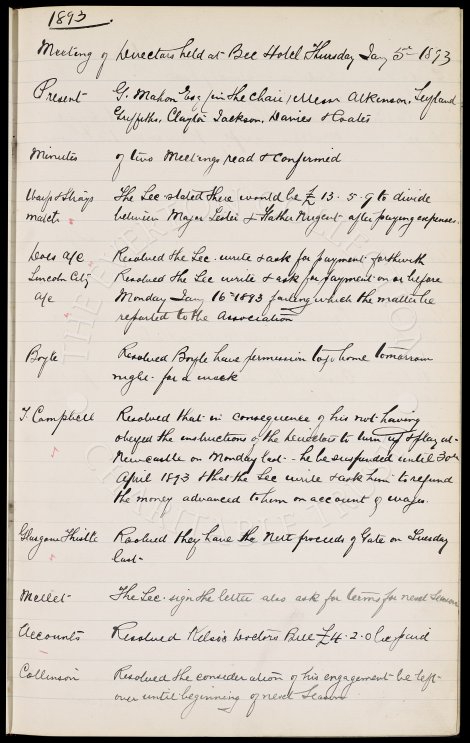 1893.
Meeting of Directors held at Bee Hotel Thursday Jany 5th 1893
Present G. Mahon Esq (in the chair) Messrs Atkinson, Leyland
Griffiths, Clayton Jackson, Davies & Coates
Minutes of two Meetings read & confirmed
Waifs & Strays The Sec. stated there would be £13.5.9 to divide
match between Major Lester & Father Nugent after paying expenses.
a/c Resolved the Sec. write & ask for payment forthwith
Lincoln City Resolved the Sec write & ask for payment on or before
a/c Monday Jany 16th 1893 failing which the matter be
reported to the Association
Boyle Resolved Boyle have permission to go home tomorrow
night for a week
T. Campbell Resolved that in consequence of his not having
obeyed the instructions of the Directors to turn up & play at
Newcastle on Monday last - he be suspended until 30th
April 1893 & that the Sec write & ask him to refund
the money advanced to him on account of wages.
Glasgow Thistle Resolved they have the Nett proceeds of Gate on Tuesday
last-
The Sec. sign the letter also ask for terms for next Season
Accounts Resolved Kelso's Doctors Bill £4.2.0 be paid
Collinson Resolved the consideration of his engagement be left
over until beginning of next Season